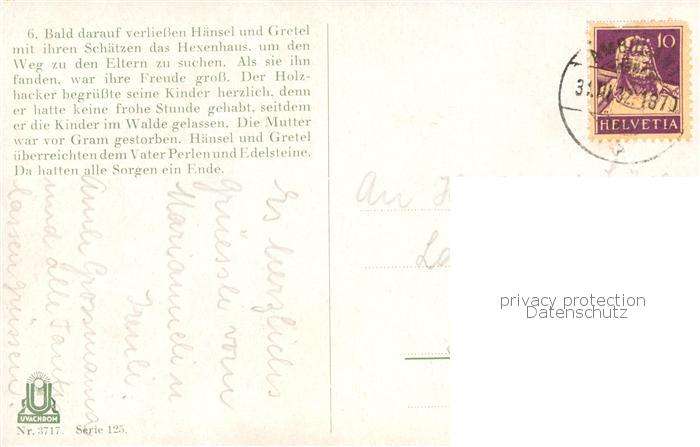 6. Bald darauf verließen Hänsel und Gretel
mit ihren Schätzen das Hexenhaus, um den
Weg zu den Eltern zu suchen. Als sie ihn
fanden, war ihre Freude groß. Der Holz-
hacker begrüßte seine Kinder herzlich, denn
er hatte keine frohe Stunde gehabt, seitdem
er die Kinder im Walde gelassen. Die Mutter
war vor Gram gestorben. Hänsel und Gretel
überreichten dem Vater Perlen und Edelsteine.
Da hatten alle Sorgen ein Ende.
Es herzlichs
Grüessli vom
Marianneli u
Trenli.
Grossmama
und alle
lassen grüssen.
An
10
HELVETIA
privacy protection
Datenschutz
UVACHROM
Nr. 3717. Serie 125.